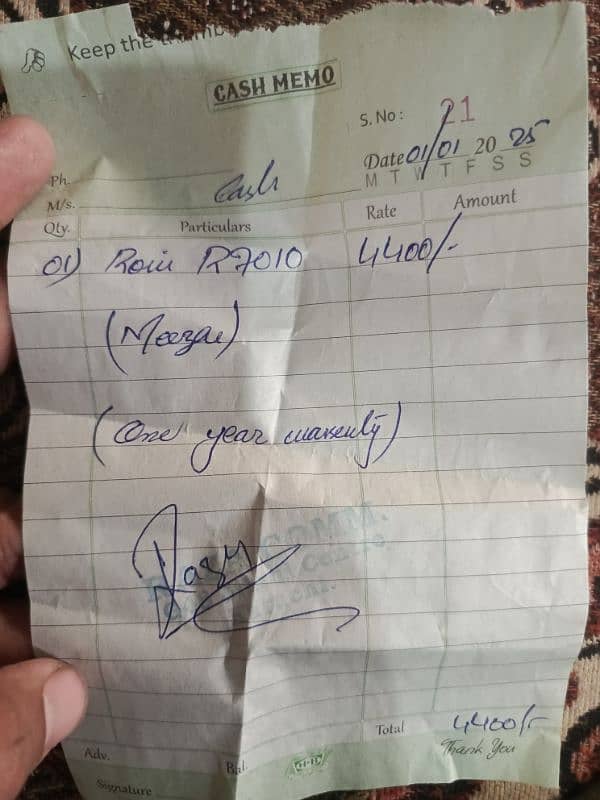 Keep the
CASH MEMO
S. No: 21
Date 01/01 20 25
M T W T F S S
Ph.
M/s. Cash
Qty. Particulars Rate Amount
01) R7010 4400/-
(One year
COMM.
Centre
Total 4400/-
Thank You
Adv.
Bal.
Signature